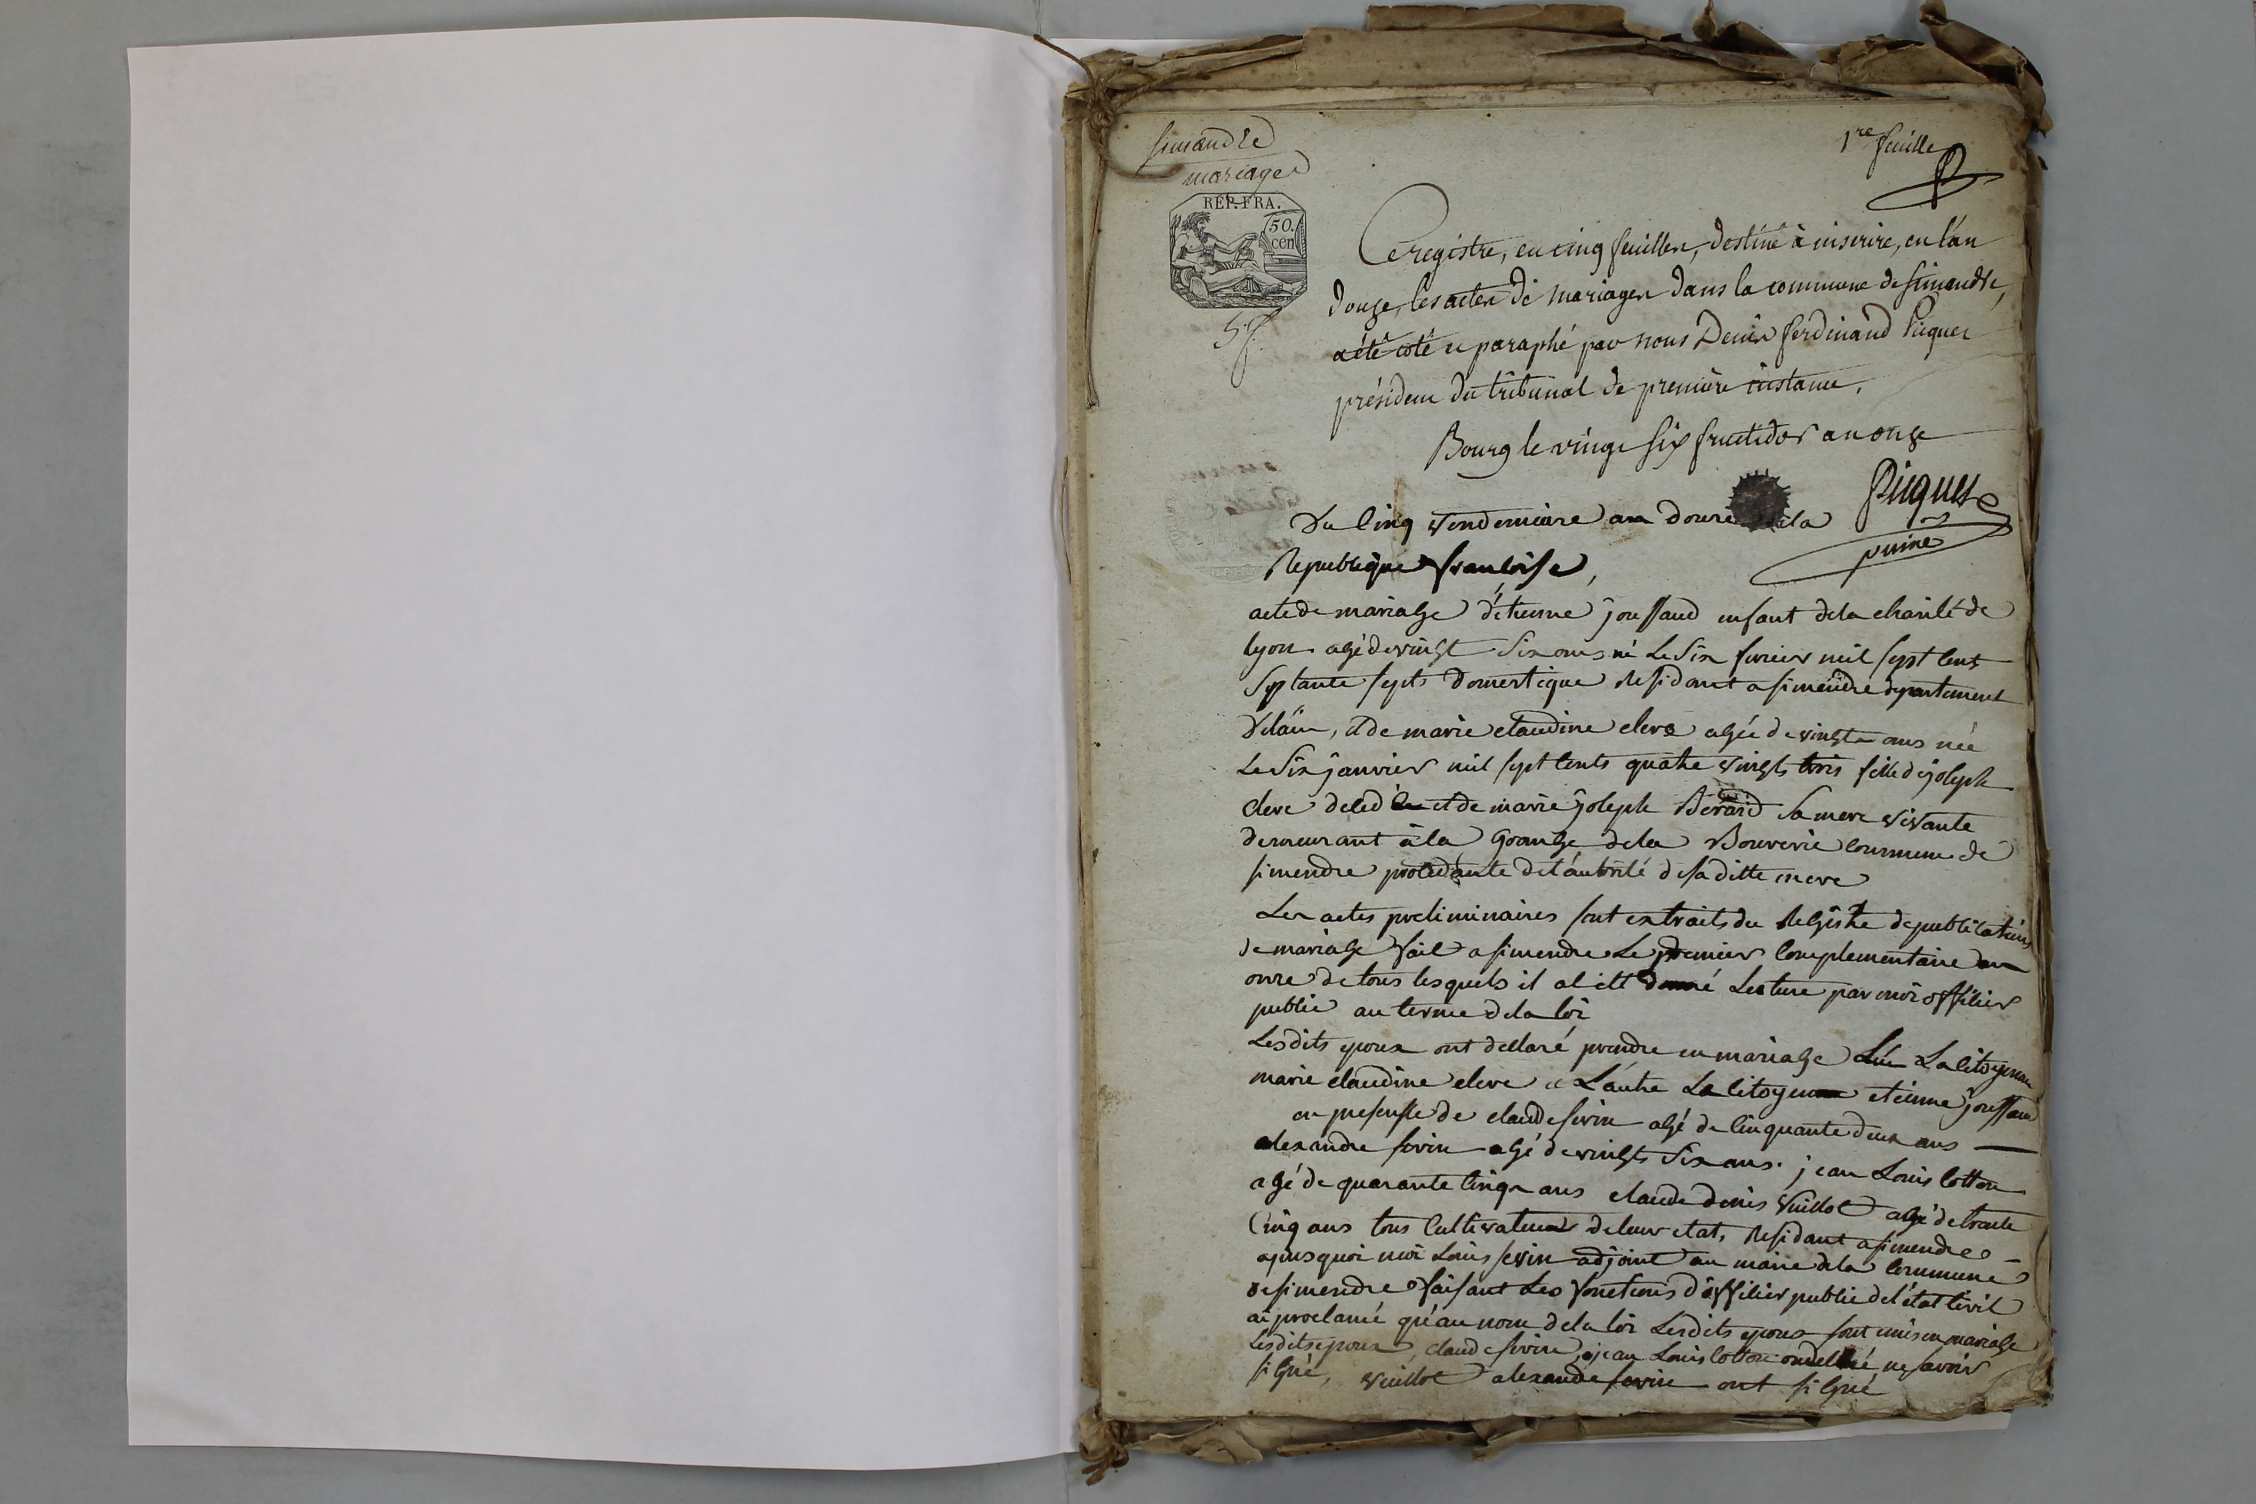 simandre
mariages
1re feuille
REP. FRA.
50.
cen
5 f.
Ce registre, en cinq feuilles, destiné à inscrire, en l'an
douze, les actes de mariages dans la commune de simandre,
a été coté et paraphé par nous Denis ferdinand Picquet
président du tribunal de première instance.
Bourg le vingt six fructidor an onze
Picquet
puiné
Du cinq vendemiaire an douze de la
Republique francoise,
acte de mariage d'étienne joussaud enfant de la charité de
lyon agé de vingt six ans né le six fevrier mil sept cent
septante sept domestique residant a simendre departement
de lain, et de marie claudine clere agée de vingt ans née
le six janvier mil sept cents quatre vingts trois fille de joseph
clere decedé et de marie joseph Bérard sa mere vivante
demeurant à la Grange de la Bouverie commune de
simendre procedante de l'autorité de sa ditte mere
Les actes preliminaires sont extraits du registre de publications
de mariage fait a simendre le premier complementaire an
onze de tous lesquels il a été donné lecture par moi officier
public au terme de la loi
Lesdits epoux ont declaré prendre en mariage lun La citoyenne
marie claudine clere et L'autre Le citoyen etienne joussaud
en presensse de claude sivin agé de cinquante deux ans
alexandre sivin agé de vingts six ans. jean Louis cotton
agé de quarante cinq ans claude denis vuillot agé de trante
cinq ans tous cultivateurs de leur etat, residant a simendre
apres quoi moi Louis sevin adjoint au maire de la commune
de simendre faisant les fonctions d'officier public de l'état civil
ai proclamé qu'au nom de la loi Lesdits epoux sont unis en mariage
Lesdits epoux, claude sivin, jean Louis cotton ont declaré ne savoir
signé, vuillot alexandre sivin ont signé